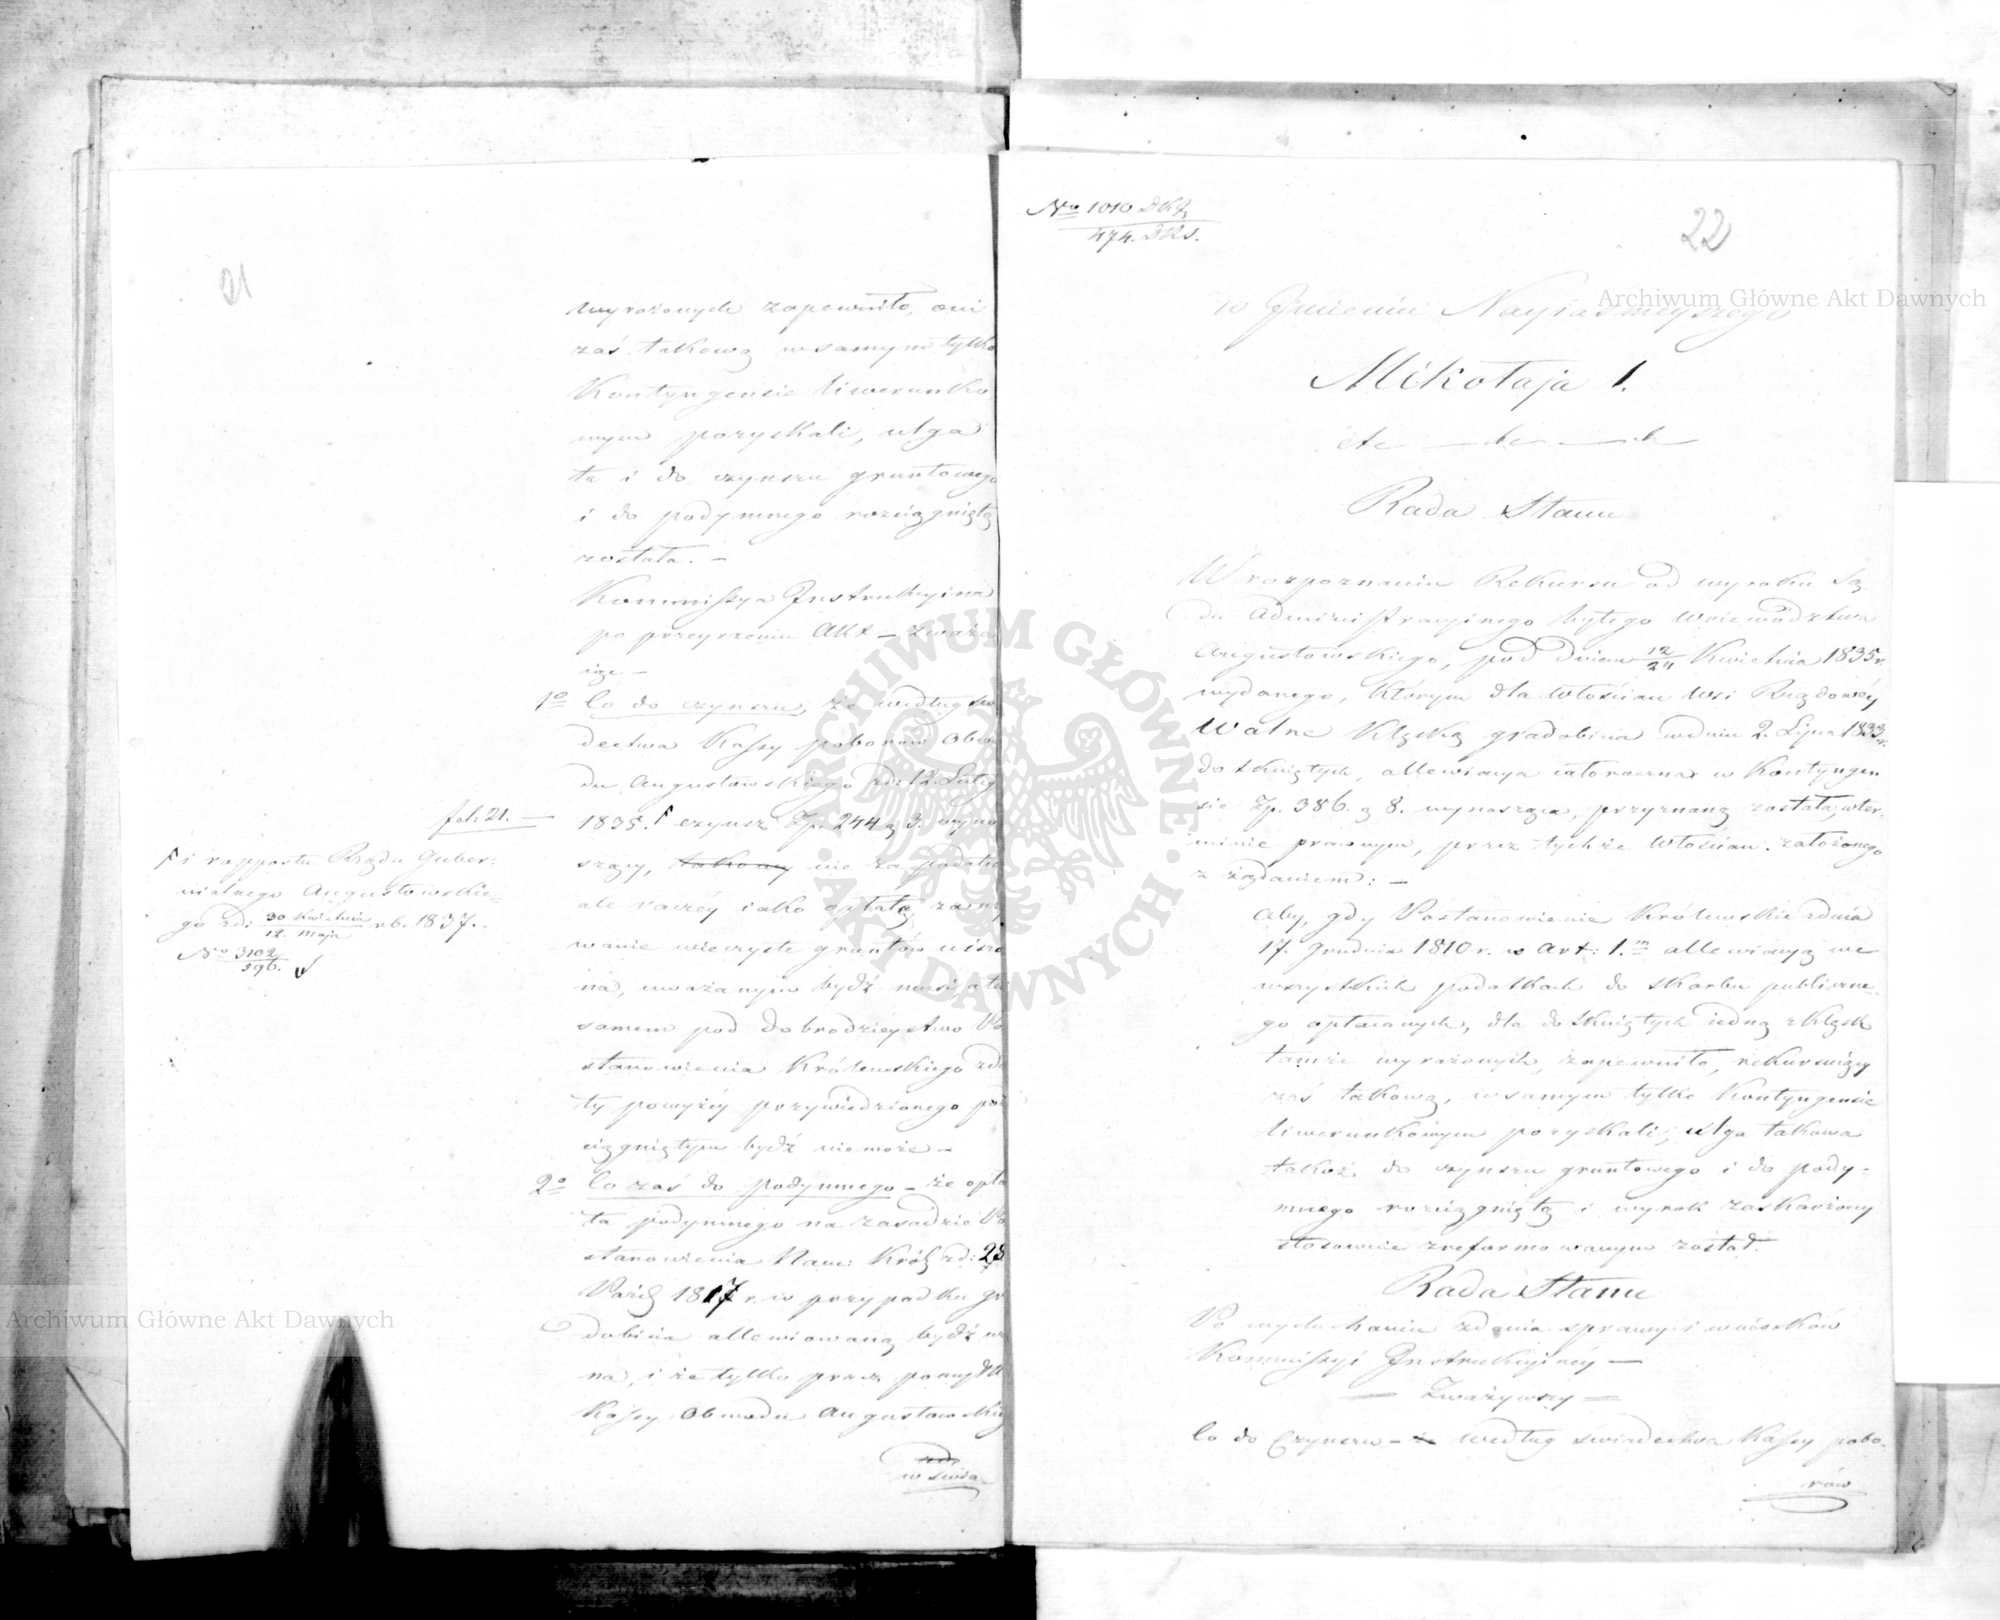 21
wyrażonych zapewniło, oni
zaś takową w samym tylko
Kontyngensie liwerunko
wym pozyskali, ulga
ta i do czynszu gruntowego
i do podymnego rozciągniętą
została. –
Kommissya Instrukcyina
po przeyrzeniu Akt – zważa
iąc –
1º Co do czynszu, że według świa
dectwa Kassy poborów Obwo
du Augustowskiego zd: 12. Lutego
fol: 21. –
1835. czynsz Zp. 244 g 3. wyno
szący, takowy nie za podatek
ale raczéy iako opłata, za uży
wanie wieczyste gruntów uiszczo
na, uważanym bydź musi, a tem
samem pod dobrodzieystwo Po
stanowienia Królewskiego z da
ty powyżéy przywiedzionego pod
ciągniętym bydź nie może –
2º Co zaś do podymnego – że opła
ta podymnego na zasadzie Po
stanowienia Nam: Król: zd: 23
Paźd 1817 r. w przypadku gra
dobicia allewiowaną bydź win
na, i że tylko przez pomyłkę
Kassy Obwodu Augustowskiego
w świa
i rapportu Rządu Guber-
nialnego Augustowskie-
go zd: 30 Kwietnia / 12. Maja r.b. 1837.
No 3102/596.
No 1010 DKJ / 474. DRS.
22
w Imieniu Nayiaśnieyszego
Mikołaja 1.
etc – etc – etc
Rada Stanu
W rozpoznaniu Rekursu od wyroku Są
du Administracyinego byłego Woiewództwa
Augustowskiego, pod dniem 12/24 Kwietnia 1835 r.
wydanego, którym dla Włościan Wsi Rządowéy
Walne klęską gradobicia w dniu 2. Lipca 1833 r.
dotkniętych, allewiacya całoroczna w Kontyngen
sie Zp. 386. g 8. wynosząca, przyznaną została, w ter-
minie prawnym, przez tychże Włościan założonego
z żądaniem: –
Aby, gdy Postanowienie Królewskie z dnia
17. Grudnia 1810 r. w Art: 1.m allewiacyą we
wszystkich podatkach do skarbu publiczne-
go opłacanych, dla dotkniętych iedną z klęsk
tamże wyrażonych, zapewniło, rekursuiący
zaś takową, w samym tylko Kontyngensie
liwerunkowym pozyskali, ulga takowa
także do czynszu gruntowego i do pody-
mnego rozciągniętą i wyrok zaskarżony
stosownie zreformowanym został.
Rada Stanu
Po wysłuchaniu zdania sprawy i wniosków
Kommissyi Instrukcyinéy –
– Zważywszy –
Co do Czynszu – że według świadectwa Kassy pobo-
rów
Archiwum Główne Akt Dawnych
Archiwum Główne Akt Dawnych
ARCHIWUM GŁÓWNE
AKT DAWNYCH